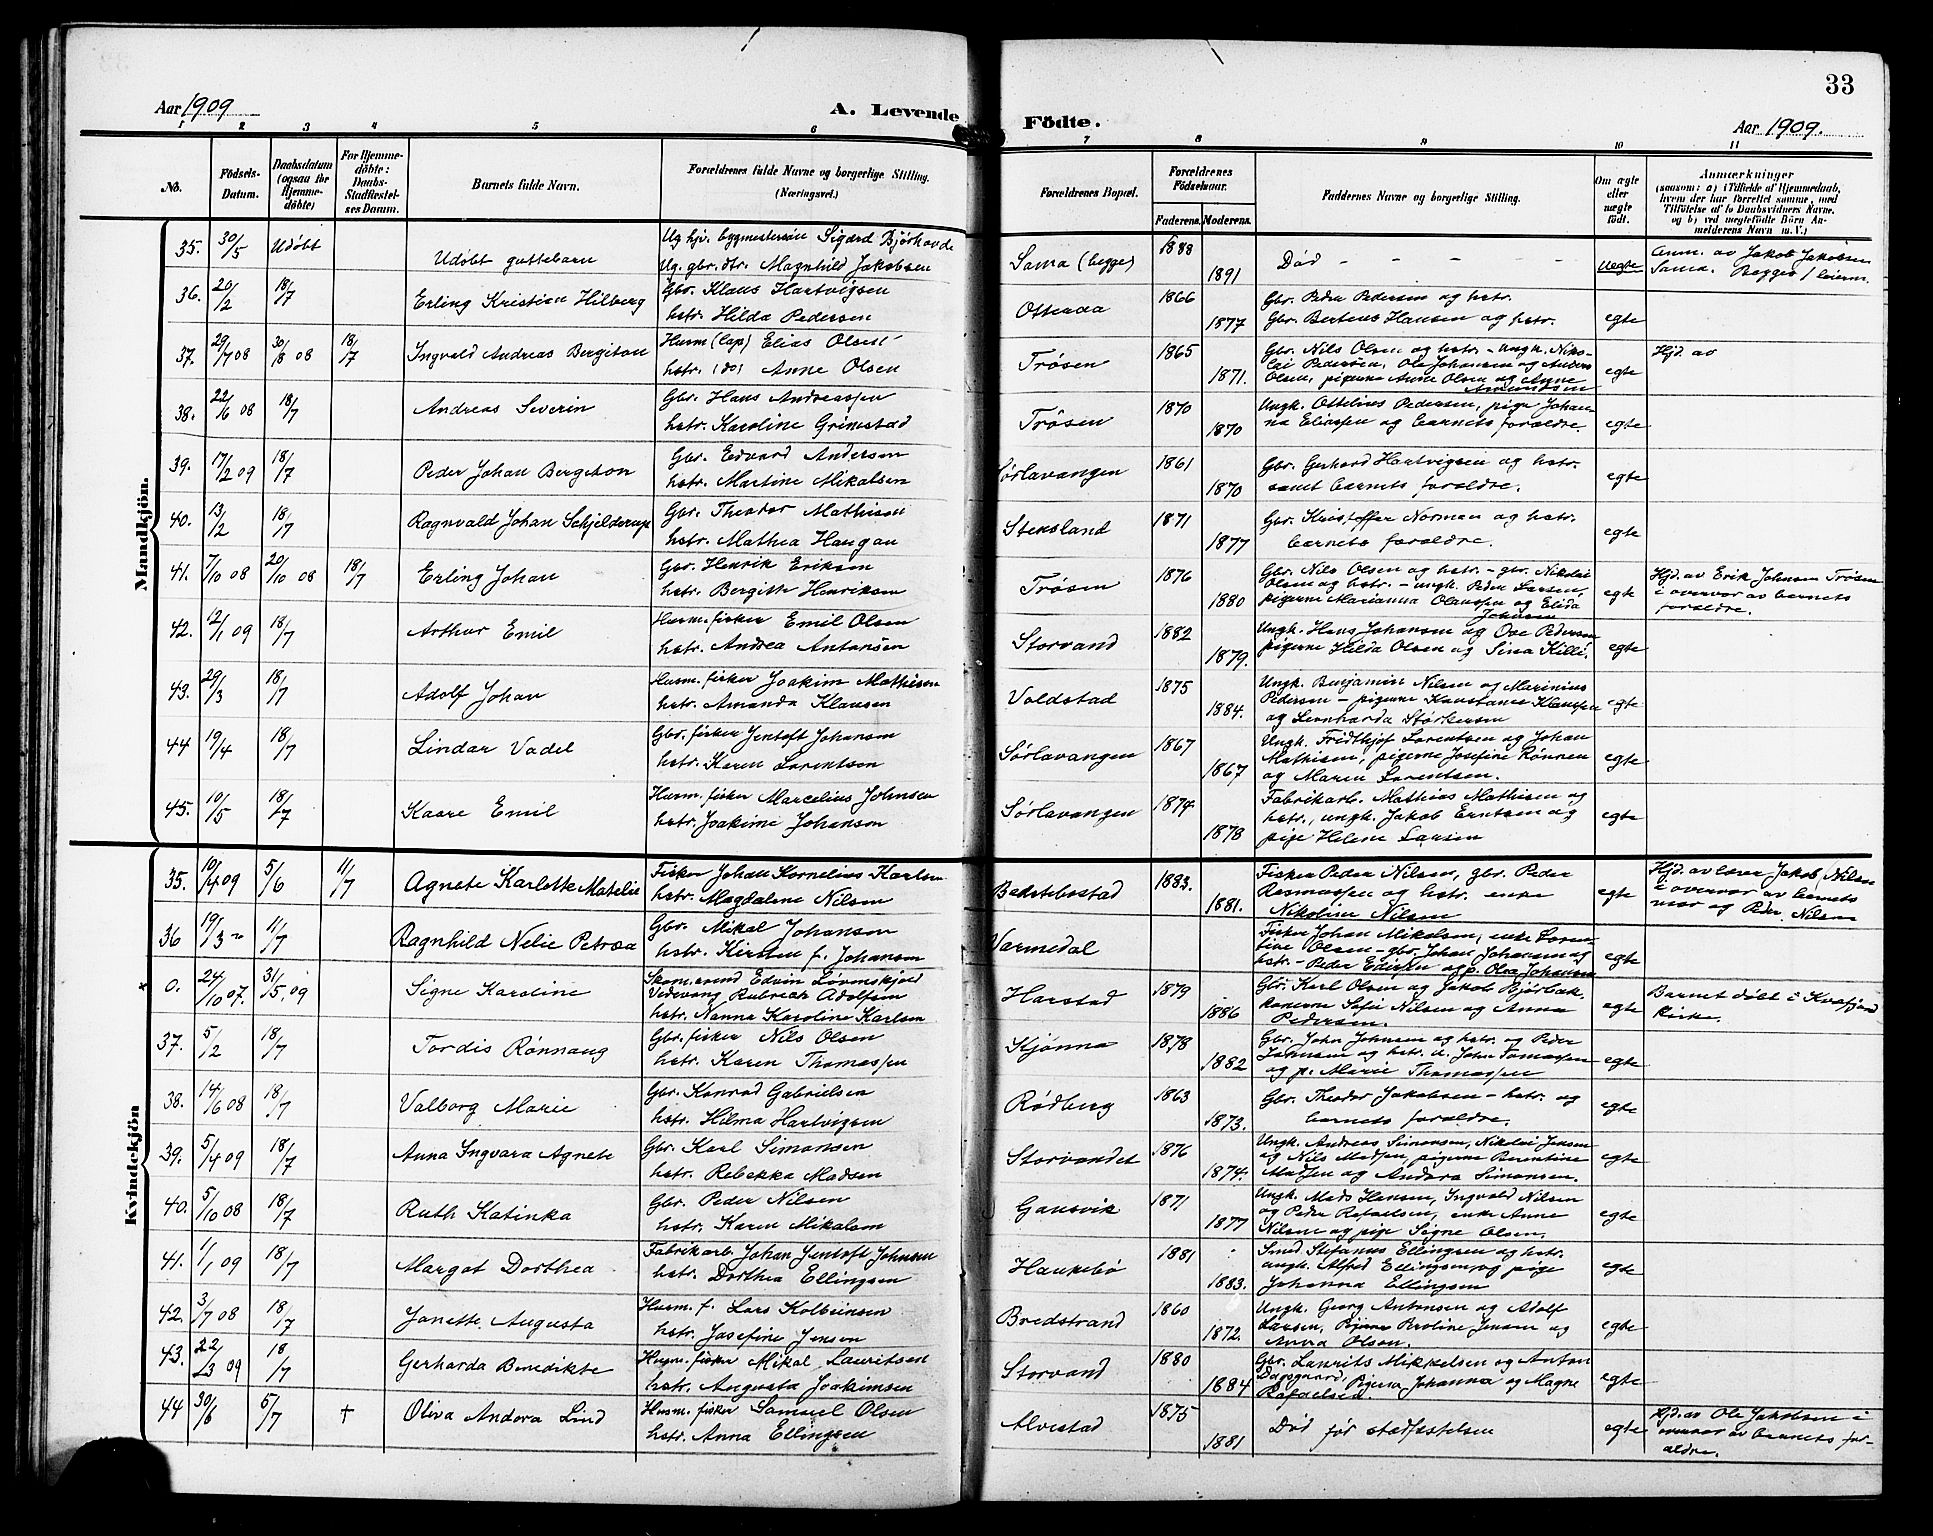 33
Aar 1909 A. Levende Födte. Aar 1909.
1 2 3 4 5 6 7 8 9 10 11
No.
Födsels-Datum.
Daabsdatum (ogsaa for Hjemme-döbte)
For Hjemme-döbte: Daabs-Stadfæstel-ses Datum.
Barnets fulde Navn.
Forældrenes fulde Navne og borgerlige Stilling. (Næringsvei.)
Forældrenes Bopæl.
Forældrenes Födselsaar.
Faderens. Moderens.
Faddernes Navne og borgerlige Stilling.
Om ægte eller uægte födt.
Anmærkninger
(saasom: a) i Tilfælde af Hjemmedaab, hvem der har forrettet samme, med Tilföielse af to Daabsvidners Navne, og b) ved uægtefödte Börn An-melderens Navn m. V.)
Mandkjön.
35. 30/5 Udöbt Udöbt guttebarn Ug hjv. bygmestersön Sigurd Bjørhovde
Ug. gbr. dtr. Magnhild Jakobsen Sama (begge) 1888 1891 Död - - - - - uegte Anm. av Jakob Jakobsen
Sama. Begges 1 leierm.
36. 20/2 18/7 Erling Kristian Hilberg Gbr. Klaus Hartvigsen
hstr. Hilda Pedersen Otteraa 1866 1877 Gbr. Peder Pedersen og hstr.
Gbr. Berteus Hansen og hstr. egte
37. 29/7 08 30/8 08 18/7 Ingvald Andreas Bergiton Husm (lap) Elias Olsen
hstr. (do) Anne Olsen Trøsen 1865 1871. Gbr. Nils Olsen og hstr. - Ungk. Niko-
lai Pedersen, Ole Johansen og Anders
Olsen, pigerne Anne Olsen og Anne
Amundsen egte Hjd. av
38. 22/6 08 18/7 Andreas Severin Gbr. Hans Andreassen
hstr. Karoline Grimstad Trøsen 1870 1870 Ungk. Ottelius Pedersen, pige Johan-
na Eliassen og barnets foraldre. egte
39. 17/2 09 18/7 Peder Johan Bergeton Gbr. Edvard Andersen
hstr. Martine Mikalsen Sørlavangen 1861 1870 Gbr. Gerhard Hartvigsen og hstr.
samt barnets foraldre. egte
40. 13/2 18/7 Ragnvald Johan Schjelderup Gbr. Theodor Mathisen
hstr. Mathea Haugan Stensland 1871 1877 Gbr. Kristoffer Norman og hstr.
barnets foraldre. egte
41. 7/10 08 20/10 08 18/7 Erling Johan Gbr. Henrik Eriksen
hstr. Bergith Henriksen Trøsen 1876 1880 Gbr. Nils Olsen og hstr. - gbr. Nikolai
Olsen og hstr. - ungk. Peder Larsen,
pigerne Marianna Olaussen og Elida
Johnsen egte Hjd. av Erik Johnsen Trøsen
i overvar av barnets
foraldre.
42. 12/1 09 18/7 Arthur Emil Husm. fisker Emil Olsen
hstr. Andrea Antonsen Storvand 1882 1879. Ungk. Hans Johansen og Ove Pedersen
pigerne Hilda Olsen og Sina Killi. egte
43. 29/3 18/7 Adolf Johan Husm. fisker Joakim Mathisen
hstr. Amanda Klausen Voldstad 1875 1884. Ungk. Benjamin Nilsen og Marinius
Pedersen - pigerne Konstanse Klausen
og Leonharda Störkersen egte
44 19/4 18/7 Lindar Vadel Gbr. fisker Jentoft Johansen
hstr. Karen Lorentsen Sørlavangen 1867 1867 Ungk. Fridthjof Lorentsen og Johan
Mathisen, pigerne Josefine Rönnen
og Maren Lorentsen. egte
45. 10/5 18/7 Kaare Emil Husm. fisker Marcelius Johnsen
hstr. Joakime Johansen Sørlavangen 1874. 1878 Fabrikarb. Mathias Mathisen og
hstr., ungk. Jakob Erntsen og
pige Helene Larsen egte
Kvindekjön
35. 10/4 09 5/6 11/7 Agnete Karlotte Matelie Fisker Johan Kornelius Karlsen
hstr. Magdalene Nilsen Bedstebostad 1883. 1881. Fisker Peder Nilsen, gbr. Peder
Rasmussen og hstr. enke
Nikoline Nilsen egte Hjd. av lærer Jakob Nilsen
i overvar av barnets
mor og Peder Nilsen
36 19/3 11/7 Ragnhild Nelie Petrea Gbr. Mikal Johansen
hstr. Kirsten f. Johansen Varmedal Fisker Johan Mikalsen, enke Loren-
tine Olsen - gbr. Johan Johansen og
hstr. - Peder Edissen og p. Olea Johansen egte
0. 24/10 07. 31/5, 09 Signe Karoline Skom. svend Edvin Lövenskjold
Vedevang Rubrear Adolfsen
hstr. Nanna Karoline Karlsen Harstad 1879 1886 Gbr. Karl Olsen og Jakob Bjørbæk
konerne Sofie Nilsen og Anna
Pedersen. egte Barnet döbt i Kvæfjord
kirke.
37. 5/2 18/7 Tordis Rönnaug Gbr. fisker Nils Olsen
hstr. Karen Thomassen Kjønna 1878 1882 Gbr. John Johnsen og hstr. og Peder
Johnsen og hstr. u. John Tomassen
og p. Marie Thomassen egte
38. 14/6 08 18/7 Valborg Marie Gbr. Konrad Gabrielsen
hstr. Hilma Hartvigsen Rødberg 1863 1873. Gbr. Theodor Jakobsen - hstr. og
barnets foraldre. egte
39. 5/4 09 18/7 Anna Ingvara Agnete Gbr. Karl Simonsen
hstr. Rebekka Madsen Storvandet 1876 1874. Ungk. Andreas Simonsen, Nikolai Jensen
og Nils Madsen, pigerne Berentine
Madsen og Andora Simonsen. egte
40. 5/10 08 18/7 Ruth Katinka Gbr. Peder Nilsen
hstr. Karen Mikalsen Gausvik 1871 1877 Ungk. Mads Hansen, Ingvald Nilsen
og Peder Rafaelsen, enke Anne
Nilsen og pige Signe Olsen. egte
41. 1/1 09 18/7 Margot Dorthea Fabrikarb. Johan Jentoft Johnsen
hstr. Dorthea Ellingsen Haukebø 1881 1883. Smed Stefanus Ellingsen og hstr.
ungk. Alfred Ellingsen, og pige
Johanna Ellingsen egte
42. 3/7 08 18/7 Janette Augusta Husm. f. Lars Kolbeinsen
hstr. Josefine Jensen Bredstrand 1860 1872. Ungk. Georg Antonsen og Adolf
Larsen, Pigerne Beroline Jensen og
Anna Olsen. egte
43. 22/3 09 18/7 Gerharda Benedikte Husm. fisker Mikal Lauritsen
hstr. Augusta Joakimsen Storvand 1880 1884 Gbr. Laurits Mikkelsen og Anton
Damgaard, Pigerne Johanna og Magne
Rafaelsen egte
44 30/6 5/7 † Oliva Andora Lind Husm. fisker Samuel Olsen
hstr. Anna Ellingsen Alvestad 1875 1881 Död før stadfestelsen egte Hjd. av Ole Jakobsen i
overvar av barnets for-
aldre.